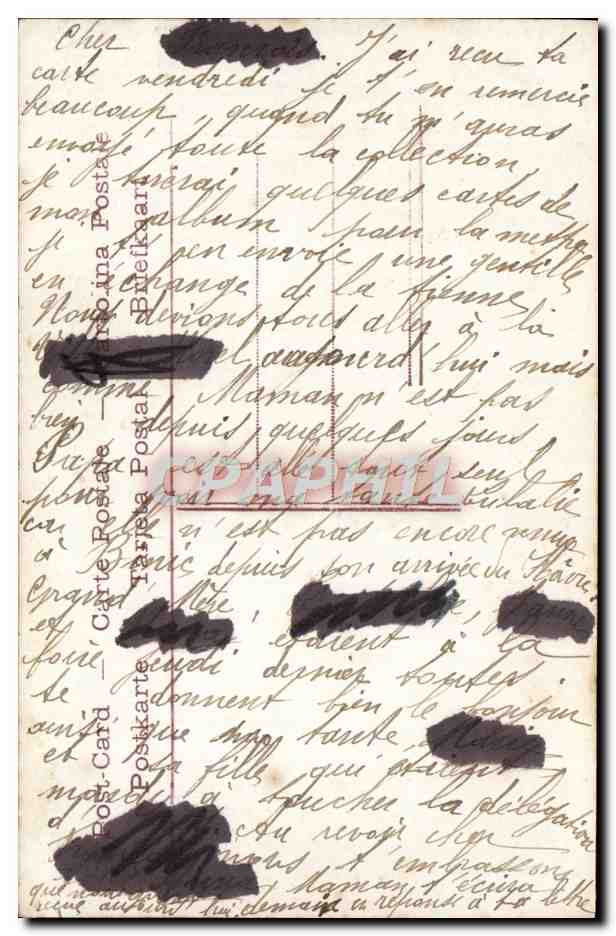 Cher
J'ai reçu ta
carte vendredi je t'en remercie
beaucoup, quand tu m'auras
envoyé toute la collection,
je tirerai quelques cartes de
mon album pour la mettre
je t'en envoie une gentille
en échange de la tienne
Nous devions tous aller à la
aujourd'hui mais
comme Maman n'est pas
bien depuis quelques jours
Papa est allé tout seul
pour voir ma tante
car elle n'est pas encore venue
à depuis son arrivée du Hâvre
Grand Mère
et étaient à la
foire jeudi dernier toutes
te donnent bien le bonjour
ainsi que ma tante
et sa fille qui étaient
mardi à toucher la délégation
Au revoir cher
nous t'embrassons
Maman t'écrira
que nous avons
reçue aujourd'hui. demain en réponse à ta lettre
Post-Card — Carte Postale — Cartolina Postale
Postkarte Tarjeta Postal Briefkaart
CPAPHIL